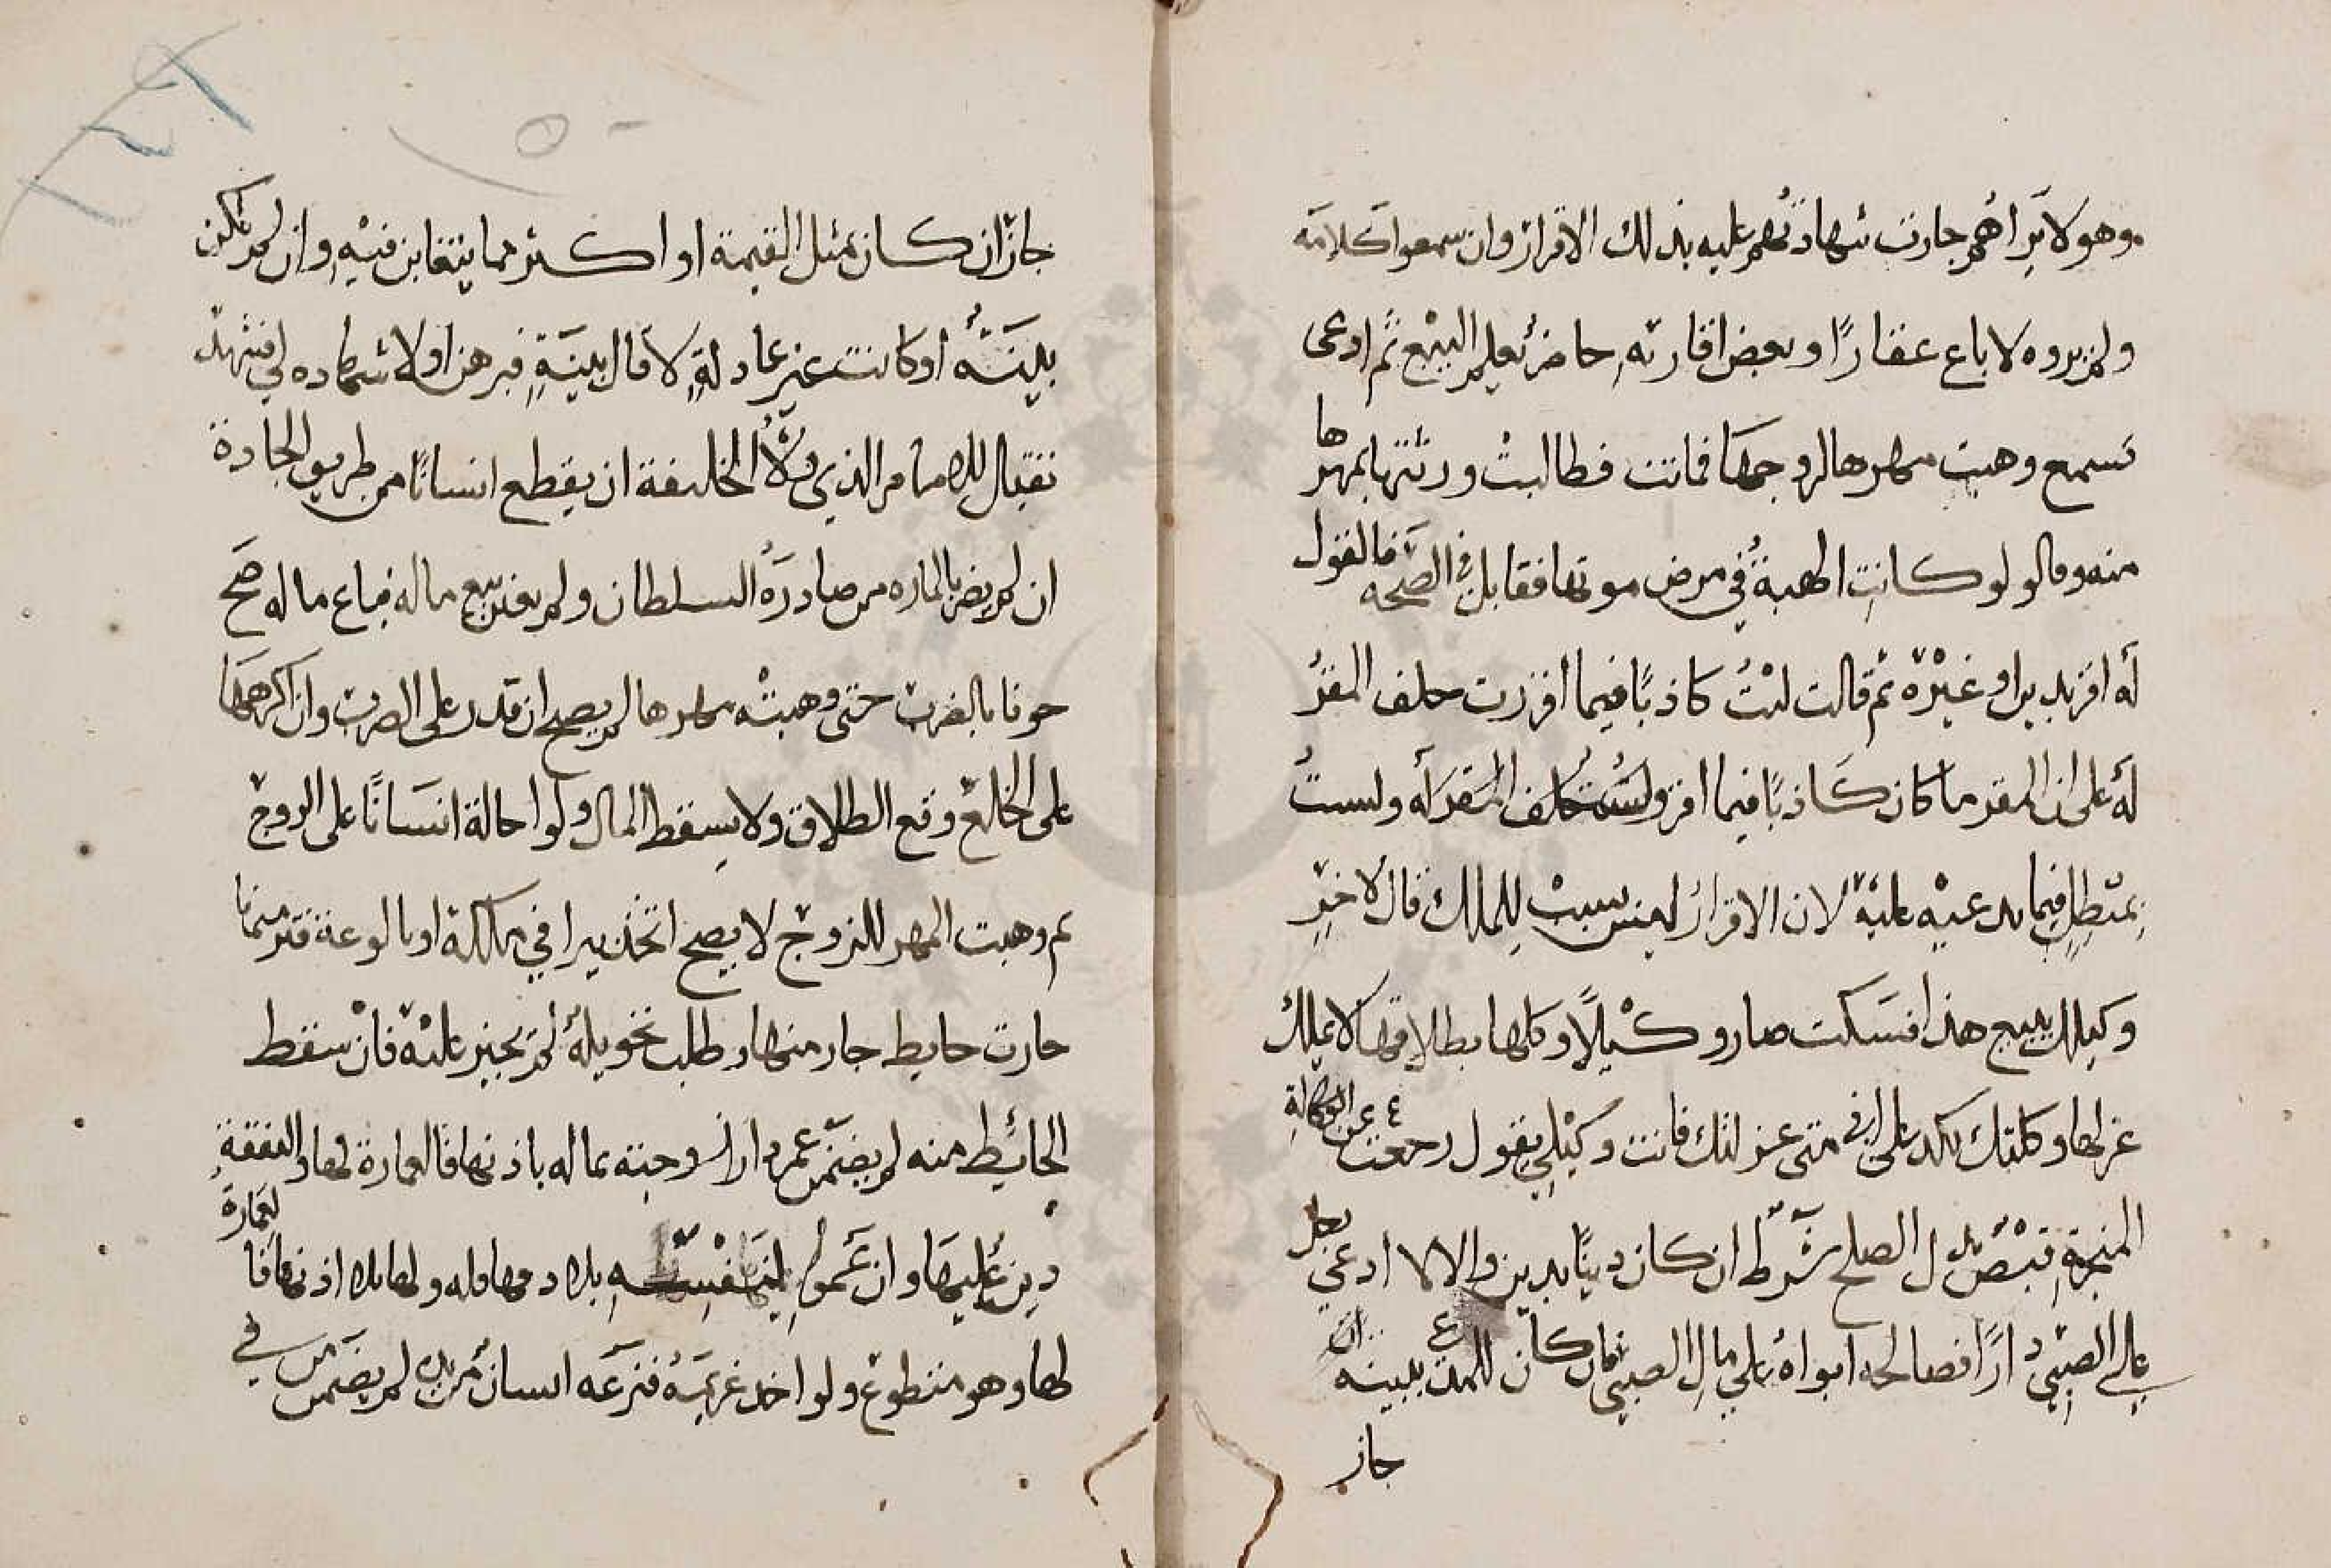 وهو لا يراهم جازت شهادتهم عليه بذلك الاقرار وان سمعوا كلامه
ولم يروه لا باع عقارًا وبعض اقاربه حاضر يعلم البيع ثم ادعى
تسمع وهبت مهرها لزوجها فماتت فطالبت ورثتها بمهرها
منه وقالو لو كانت الهبة في مرض موتها فقال بل في الصحة فالقول
له اقر بدين او غيره ثم قالت كنت كاذبًا فيما اقررت حلف المقر
له على ان المقر ما كان كاذبًا فيما اقر ولست خلف المقر له ولست
بمبطل فيما يدعيه عليه لان الاقرار ليس سبب للملك قال لاخر
وكيلك ببيع هذا فسكت صار وكيلًا وكلها بطلاقها لا يملك
عزلها وكلتك بكذا على اني متى عزلتك فانت وكيلي يقول رجعت عن الوكالة
المنجزة قبض بدل الصلح شرط ان كان دينًا بدين والا لا ادعى رجل
على الصبي دارًا فصالحه ابواه على مال الصبي فان كان للمدع بينة ان
جاز
جاز ان كان بمثل القيمة او اكثر مما يتغابن فيه وان لم تكن
بينة او كانت غير عادلة لا قال بينة فبرهن اولا شهاده لي فشهد
تقبال للامام الذي ولاه الخليفة ان يقطع انسانًا من طريق الجادة
ان لم يضر بالماره من صادره السلطان ولم يعن بيع ماله فباع ماله صح
خوفا بالضرب حتى وهبته مهرها لم يصح ان قدر على الضرب وان اكرهها
على الخلع وقع الطلاق ولا يسقط المال ولو احالة انسانًا على الزوج
ثم وهبت المهر للزوج لا يصح اتخذ بيرا في ملكه او بالوعة فنز منها
جارت حايط جار منها وطلب تحويله لم يجبر عليه فان سقط
الحائط منه لم يضمن عمر دار زوجته بماله باذنها فالعمارة لها والنفقة
دين عليها وان عمر لنفسه بلا دفها فله ولها بلا اذنها فالعمارة
لها وهو متطوع ولو اخد غريمه فنزعه انسان من يده لم يضمن من في